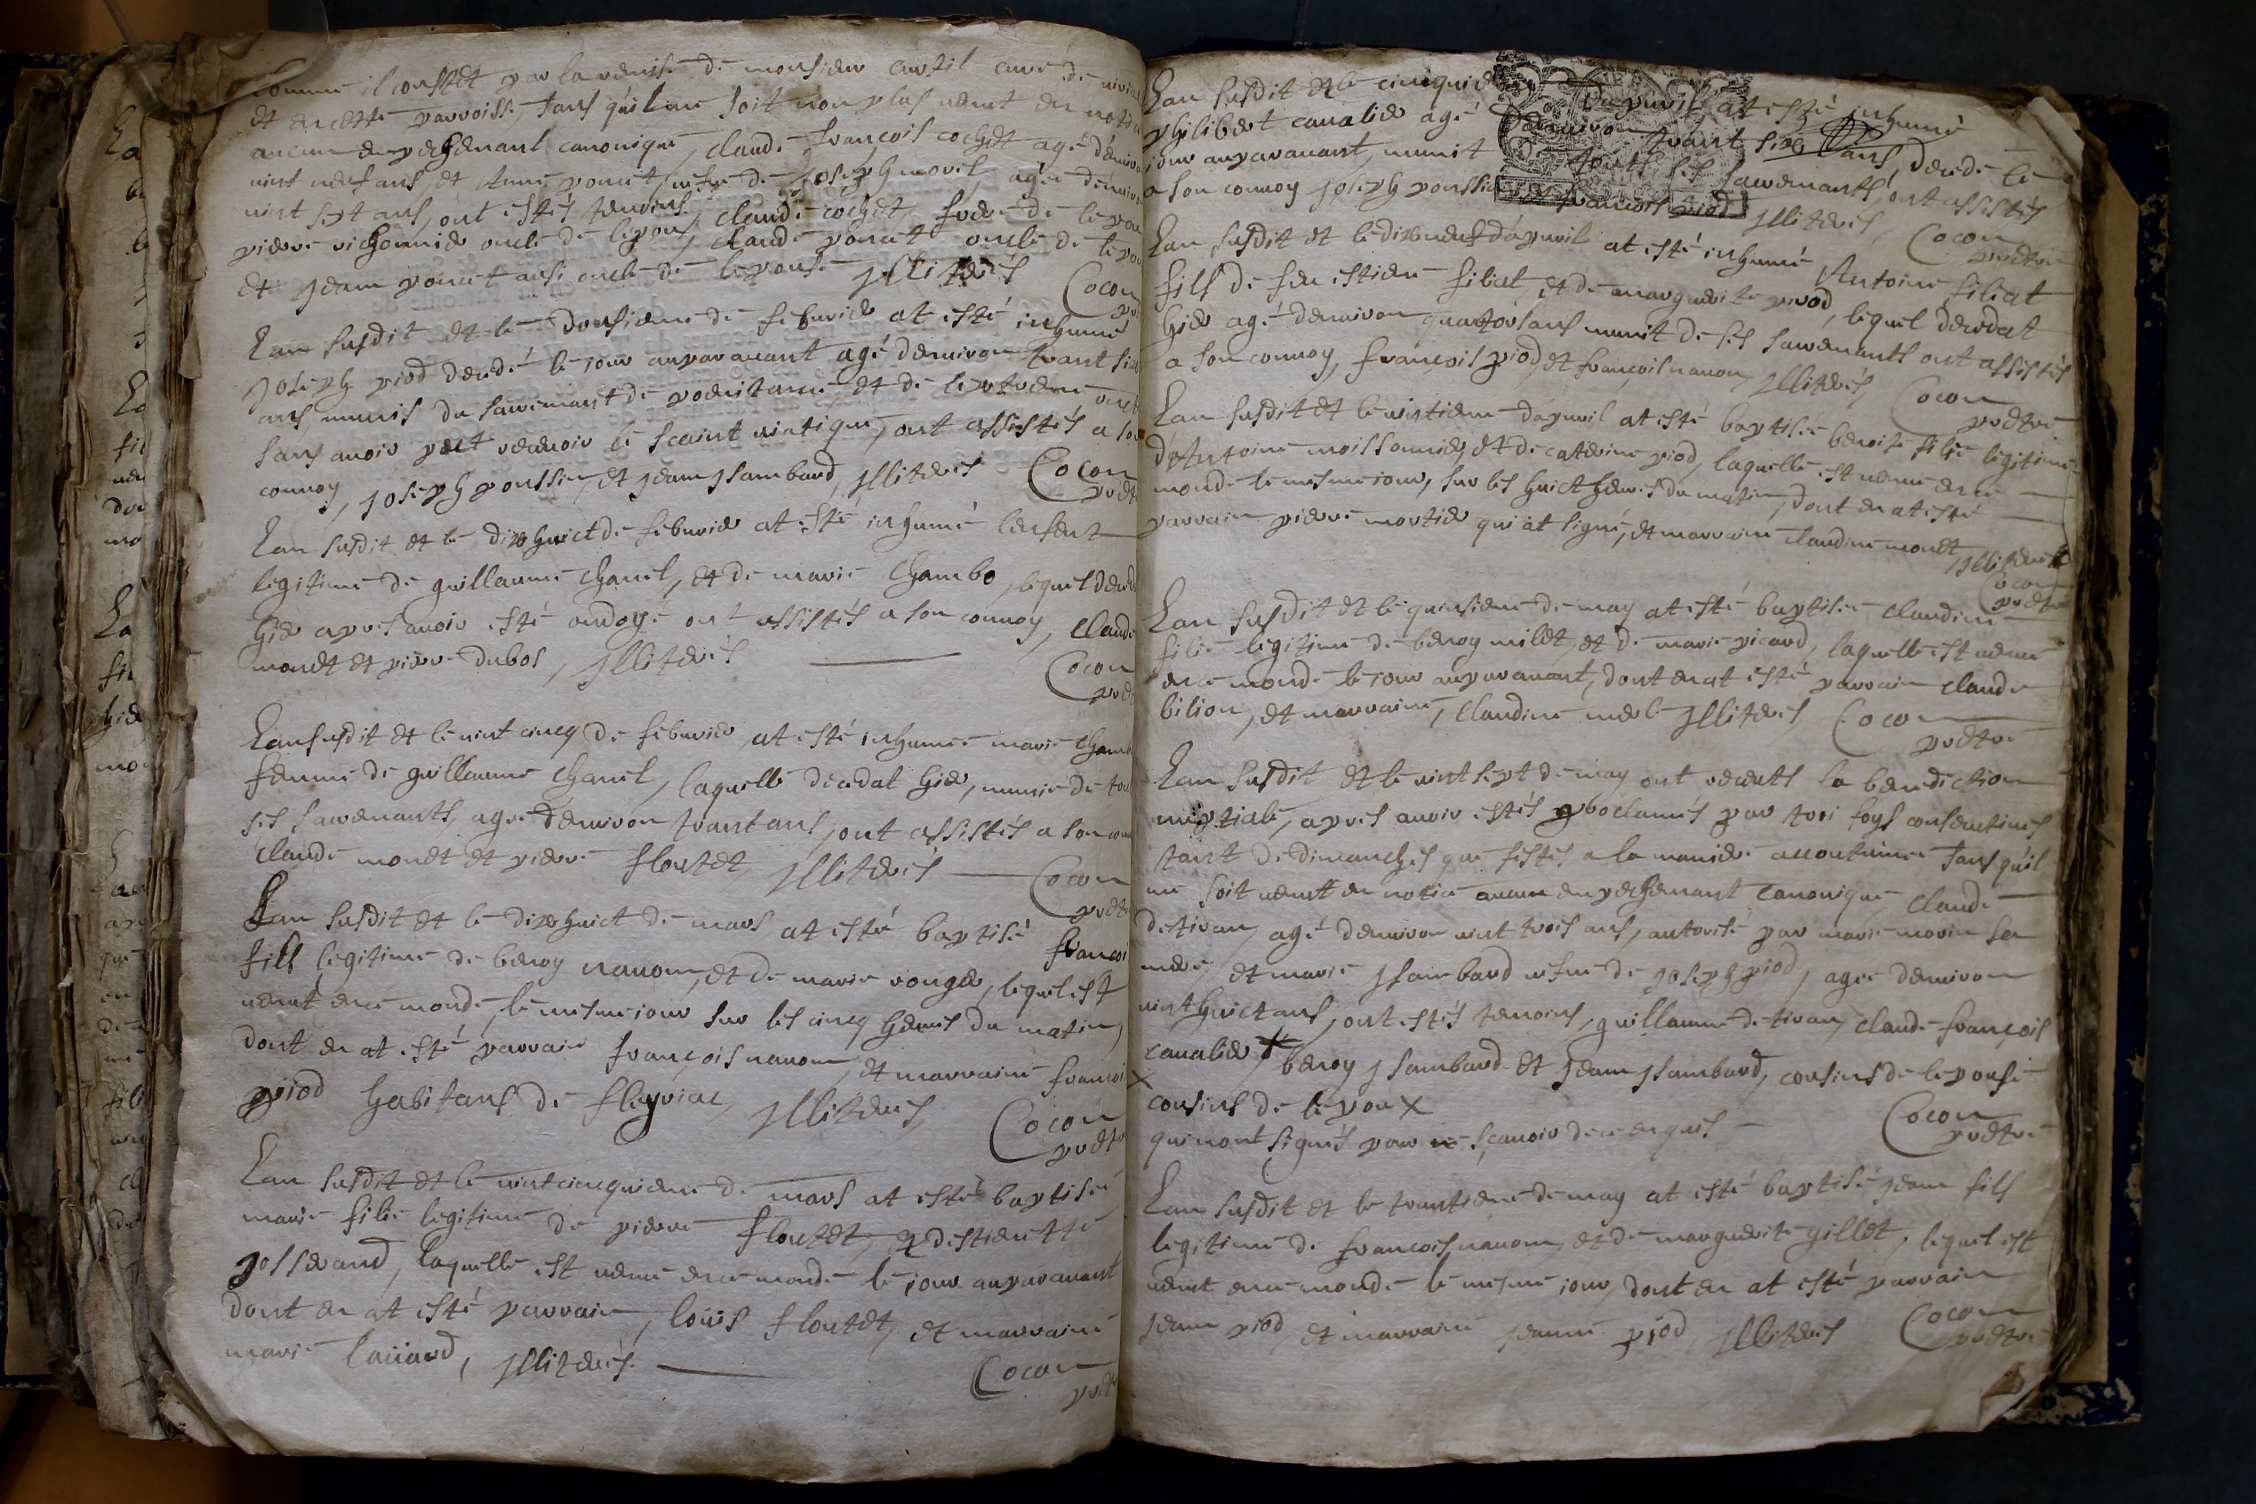 comme il constet par la remise de monsieur curtil curé de
et en cette parroisse, sans qu'il me soit non plus venut en notice
aucun empechemant canonique, claude francois cochet agé denviron
vint neuf ans, et Anne poncet vefve de Joseph morel, agée denviron
vint sept ans, ont estés temoins, claude cochet frere de lepou
pierre vichonnier oncle de lepoux, claude poncet oncle de lepou
et Jean poncet ausi oncle de lepouse Jlliterés Cocon
L'an susdit et le donsieme de febvrier at esté inhumé
Joseph piod decedé le jour auparavant agé denviron trant six
ans munis du sacremant de poenitance et de lextreme onct
sans avoir peut recevoir le scaint viatique, ont assistés a son
convoy, Joseph poussin, et Jean Jsambard, Jlliterés Cocon
pret
L'an susdit et le dix huict de febvrier at esté inhumé lenfent
legitime de guillaume Chanel, et de marie Chambo, lequel deced
hier apres avoir esté ondoyé ont assistés a son convoy, claude
monet et pierre dubos, Jlliterés Cocon
pret
L'an susdit et le vint cincq de febvrier at esté inhumée marie Cham
femme de guillaume Chanel, laquelle decedat hier, munie de tou
ses sacremants, agée denviron trant ans, ont assistés a son con
claude monet et pierre floutet Jlliterés Cocon
pret
L'an susdit et le dix huict de mars at esté baptisé francoi
fils legitime de benoy nanon, et de marie rouger, lequel est
venut en ce monde, le mesme jour sur les cincq heures du matin,
dont en at esté parrain francois nanon, et marraine francoi
piod habitans de fleyriac Jlliterés, Cocon
pretr
L'an susdit et le vint cincquieme de mars at esté baptisée
marie fille legitime de pierre floutet, et d'estienette
Josserand, laquelle est venue en ce monde le jour auparavant
dont en at esté parrain, loüis floutet, et marraine
marie laüard, Jlliterés. Cocon
pret
L'an susdit et le cincquieme d'apvril at esté inhumé
philibert cavalier agé denviron trant six ans, decedé le
jour auparavant, munit de touts ses sacremants, ont assistés
a son convoy Joseph poussin et francois piod Jlliterés, Cocon
pretre
L'an susdit et le dixneuf d'apvril at esté inhumé Antoine filiat
fils de feu estiene filiat, et de marguerite piod, lequel decedat
hier agé denviron quatorsans munit de ses sacremants ont assistés
a son convoy, francois piod, et francois nanon, Jlliterés, Cocon
pretre
L'an susdit et le vintieme d'apvril at esté baptisée benoite fille legitime
d'Antoine moissonnier, et de caterine piod, laquelle est venue en ce
monde le mesme jour, sur les huict heures du matin, dont en at esté
parrain pierre mortier qui at signé, et marraine claudine monet
Jlliterée
Cocon
pretre
L'an susdit et le quinsieme de may at esté baptisée claudine
fille legitime de benoy milet, et de marie picard, laquelle est venue
en ce monde le jour auparavant, dont en at esté parrain claude
bilion, et marraine, claudine merle Jlliterés, Cocon
pretre
L'an susdit et le vint sept de may ont receuts la benediction
nuptiale, apres avoir estés proclamés par troi foys consecutives
tant de dimanches que festes a la maniere accoutumée sans qu'il
me soit venut en notice aucun empechemant canonique claude
detivan, agé denviron vint trois ans, autorisé par marie morin sa
mere, et marie Jsambard vefve de Joseph piod, agée denviron
vint huict ans, ont estés temoins, guillaume detivan, claude francois
cavalier + benoy Jsambard et Jean Jsambard, cousins de lepouse
x cousins de lepoux
qui n'ont signés pour ne sçavoir de ce enquis Cocon
pretre
L'an susdit et le trantieme de may at esté baptisé Jean fils
legitime de francois nanon, et de marguerite gillet, lequel est
venut en ce monde le mesme jour, dont en at esté parrain
Jean piod et marraine Jeanne piod Jlliterés Cocon
pretre